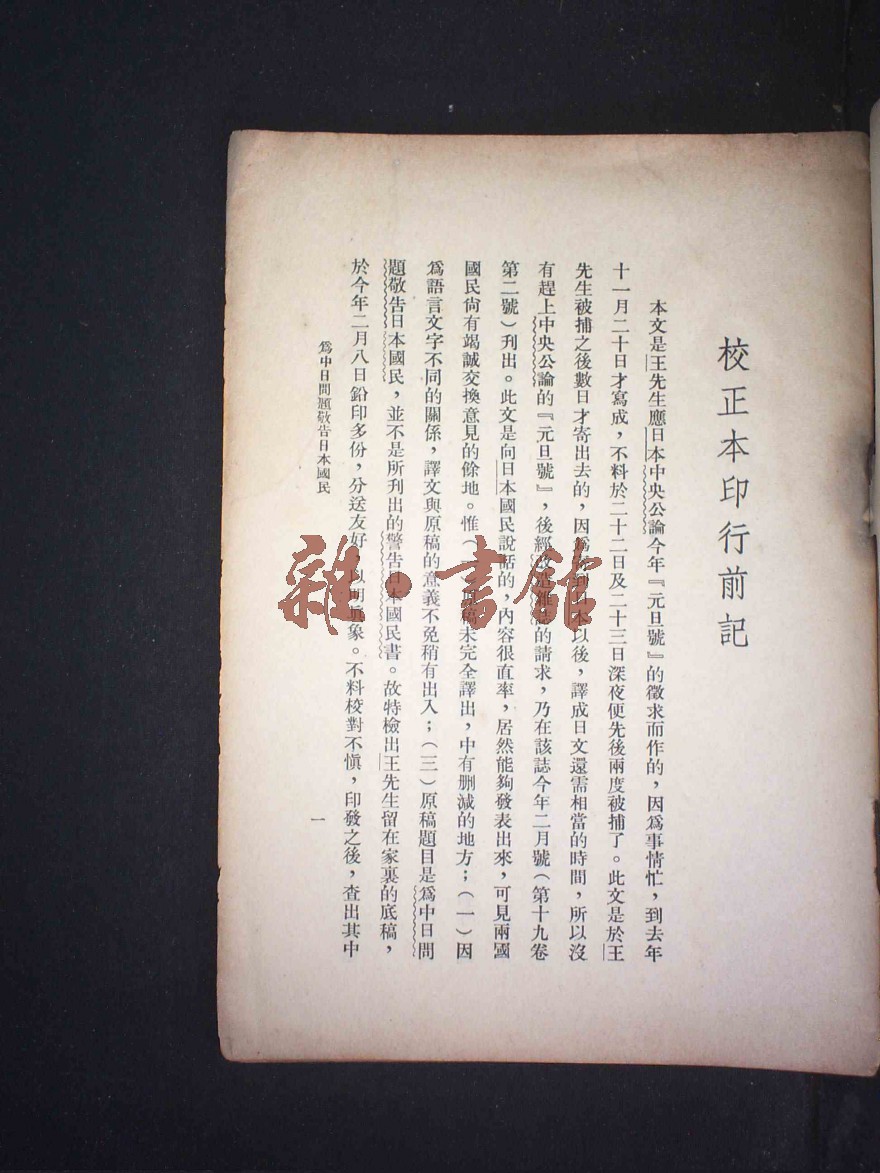 校正本印行前記
本文是王先生應日本中央公論今年『元旦號』的徵求而作的，因爲事情忙，到去年
十一月二十日才寫成，不料於二十二日及二十三日深夜便先後兩度被捕了。此文是於王
先生被捕之後數日才寄出去的，因爲到日本以後，譯成日文還需相當的時間，所以沒
有趕上中央公論的『元旦號』，後經雜誌的請求，乃在該誌今年二月號（第十九卷
第二號）刊出。此文是向日本國民說話的，內容很直率，居然能夠發表出來，可見兩國
國民尙有竭誠交換意見的餘地。惟（原稿未完全譯出，中有删減的地方；（一）因
爲語言文字不同的關係，譯文與原稿的意義不免稍有出入；（三）原稿題目是爲中日問
題敬告日本國民，並不是所刊出的警告日本國民書。故特檢出王先生留在家裏的底稿，
於今年二月八日鉛印多份，分送友好，以明眞象。不料校對不愼，印發之後，查出其中
爲中日問題敬告日本國民
一
雜·書館